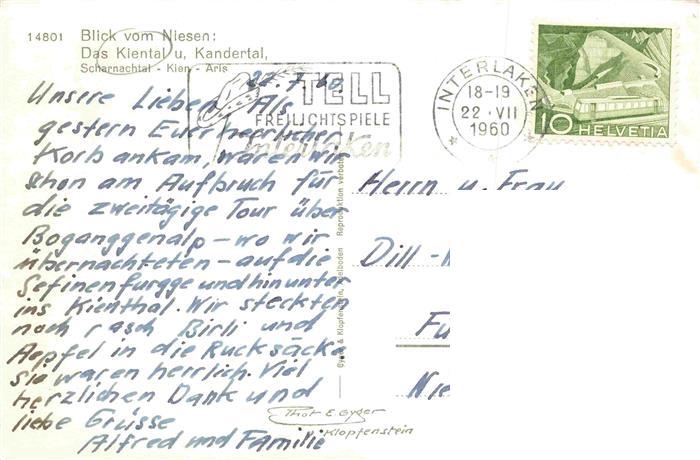 14801 Blick vom Niesen:
Das Kiental u. Kandertal,
Scharnachtal - Kien - Aris
22.7.60.
Unsere Lieben, Als
gestern Euer herrlicher
Korb ankam, waren wir
schon am Aufbruch für
die zweitägige Tour über
Boganggenalp - wo wir
übernachteten - auf die
Sefinenfurgge und hinunter
ins Kienthal. Wir steckten
noch rasch Birli und
Aepfel in die Rucksäcke
Sie waren herrlich. Viel
herzlichen Dank und
liebe Grüsse
Alfred und Familie
TELL
FREILICHTSPIELE
Interlaken
INTERLAKEN
18-19
22.VII
1960
10 HELVETIA
Gyger & Klopfenstein, Adelboden Reproduktion verboten
Herrn u. Frau
Dill -
Fu
Nie
Phot E. Gyger
Klopfenstein